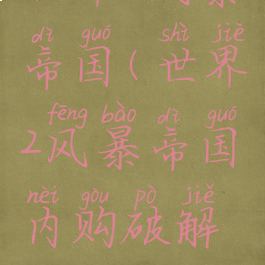 dì guó shì jiè
帝国(世界
fēng bào dì guó
2风暴帝国
nèi gòu pò jiě
内购破解